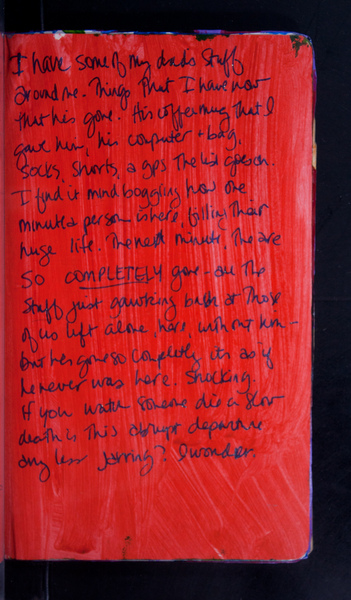 I have some of my dad's stuff
around me. Things that I have now
that his gone. His coffee mug that I
gave him, his computer + bag,
socks, shorts, a gps the list goes on.
I find it mind boggling how one
minute a person is here, filling their
huge life. The next minute, the are
so COMPLETELY gone - all the
stuff just gawking back at those
of us left alone, here, without him -
but hes gone so completely its as if
he never was here. Shocking.
If you watch someone die a slow
death is this abrupt departure
any less jarring? I wonder.